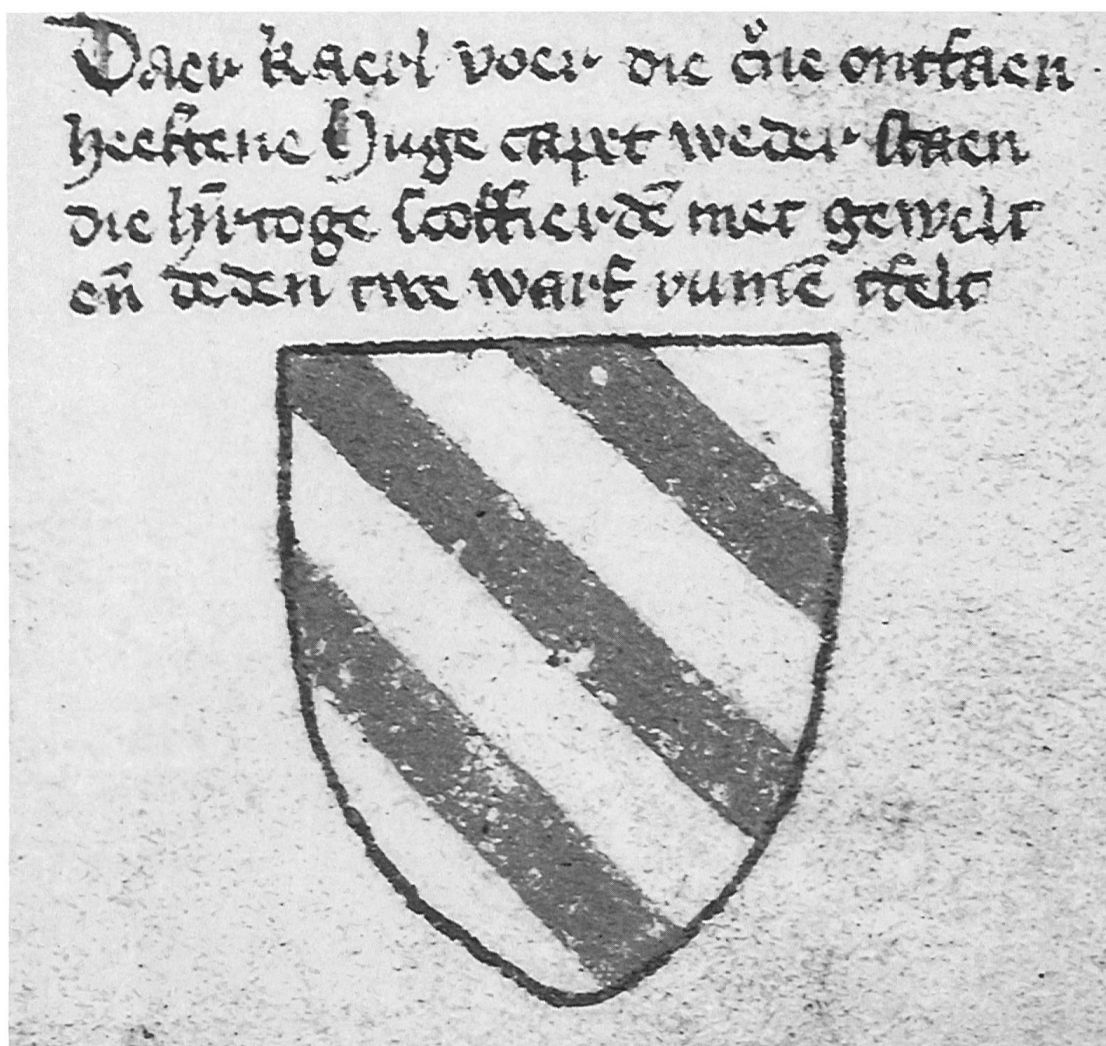 Daer kaerl voer die cr̄ne ontfaen
heeftene Huge capet weder staen
die h̄rtoge scoffierdē met gewelt
en̄ deden twe warf rumē tfelt